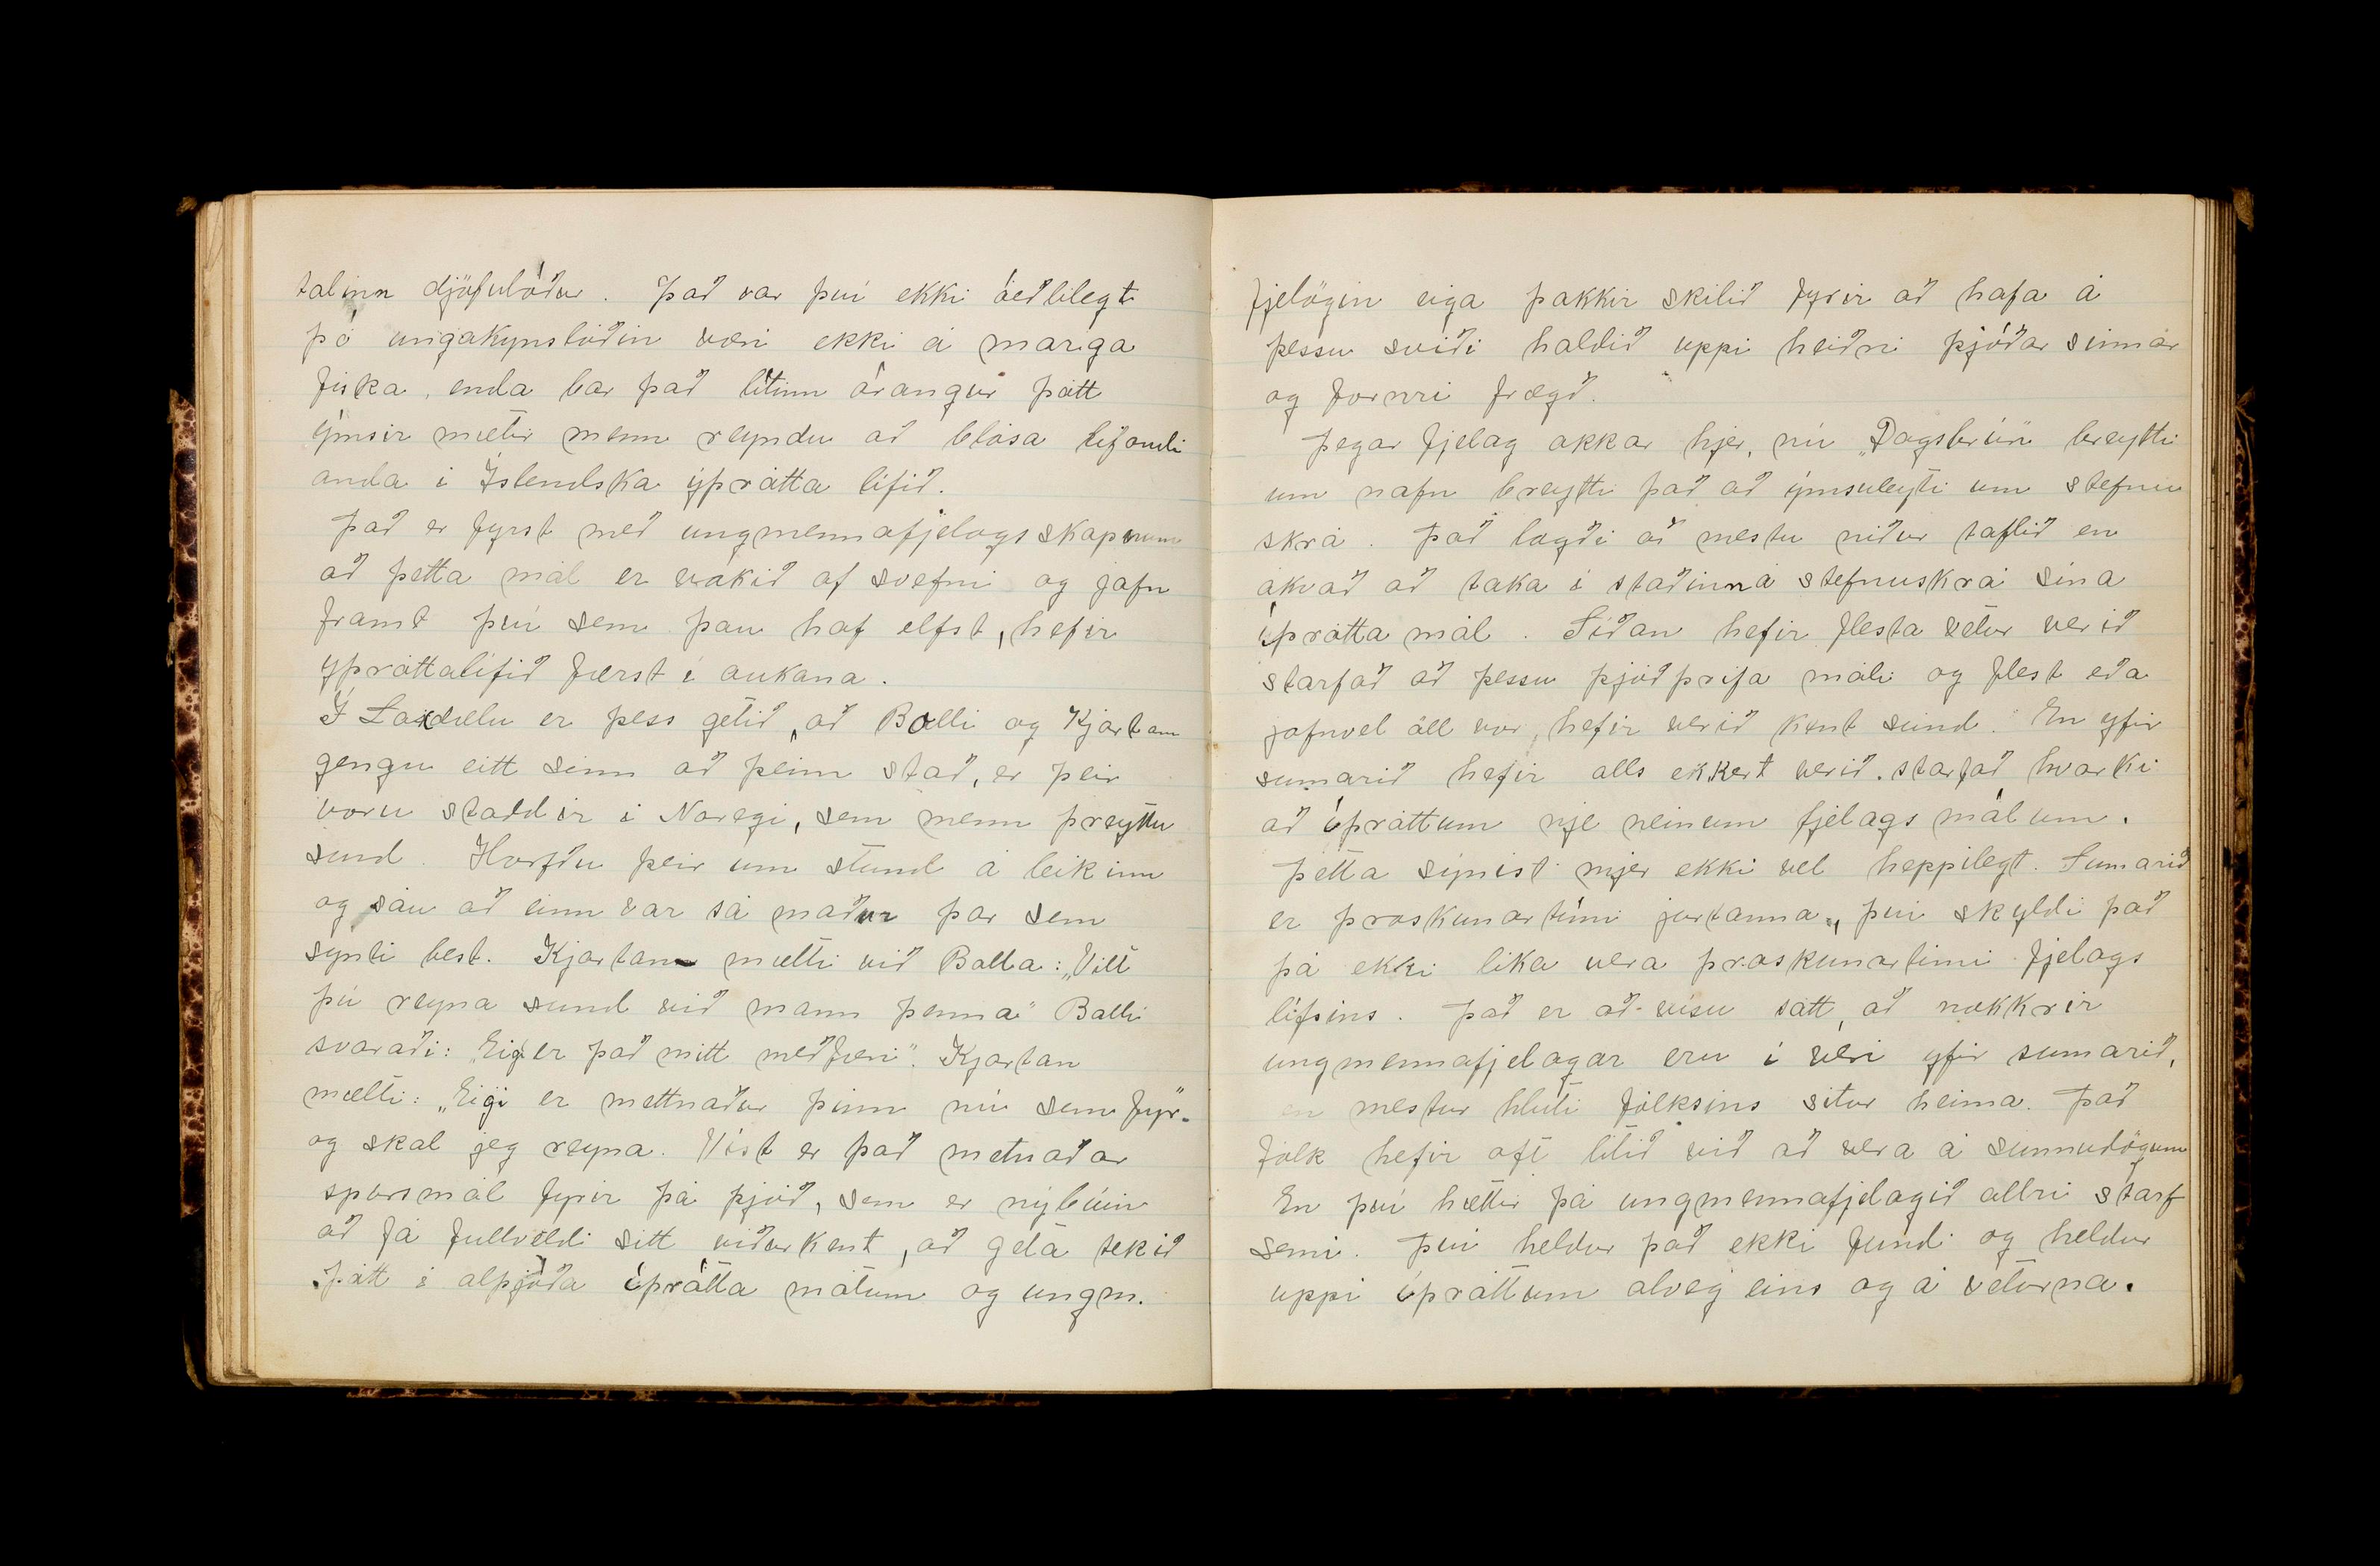 talinn djöfulóður. Það var því ekki óeðlilegt
þó ungakynslóðin væri ekki á marga
fiska, enda bar það lítinn árangur þótt
ýmsir mætir menn reyndu að blása lifandi
anda í Íslendska íþrótta lífið.
Það er fyrst með ungmennafjelagsskapnum
að þetta mál er vakið af svefni og jafn
framt því sem þau haf elfst, hefir
yþróttalífið færst í aukana.
Í Laxdælu er þess getið, að Bolli og Kjartan
gengu eitt sinn að þeim stað, er þeir
voru staddir í Noregi, sem menn þreyttu
sund. Horfðu þeir um stund á leikinn
og sáu að einn var sá maður þar sem
synti best. Kjartan mælti við Bolla: „Vilt
þú reyna sund við mann þenna" Bolli
svaraði: Eigi er það mitt meðfæri". Kjartan
mælti: „Eigi er mettnaður þinn nú sem fyr"
og skal jeg reyna. Víst er það metnaðar
spursmál fyrir þá þjóð, sem er nýbúin
að fá fullveldi sitt viðurkent, að geta tekið
þátt í alþjóða íþrótta mótum og ungm.
fjelögin eiga þakkir skilið fyrir að hafa á
þessu sviði haldið uppi heiðri þjóðar sinnar
og fornri frægð.
Þegar fjelag okkar hjer, nú „Dagsbrún" breytti
um nafn breytti það að ýmsuleyti um stefnu
skrá. Það lagði að mestu niður taflið en
ákvað að taka í staðinn á stefnuskrá sína
íþrótta mál. Síðan hefir flesta vetur verið
starfað að þessu þjóðþrifa máli og flest eða
jafnvel öll vor, hefir verið kent sund. En yfir
sumarið hefir alls ekkert verið starfað hvorki
að íþróttum nje neinum fjelags málum.
Þetta sýnist mjer ekki vel heppilegt. Sumarið
er þroskunartími jurtanna, því skyldi það
þá ekki líka vera þroskunartími fjelags
lífsins. Það er að vísu satt, að nokkrir
ungmennafjelagar eru í veri yfir sumarið,
en mestur hluti fólksins situr heima. Það
fólk hefir oft lítið við að vera á sunnudögum
En því hættir þá ungmennafjelagið allri starf
semi. Því heldur það ekki fundi og heldur
uppi íþróttum alveg eins og á veturna.